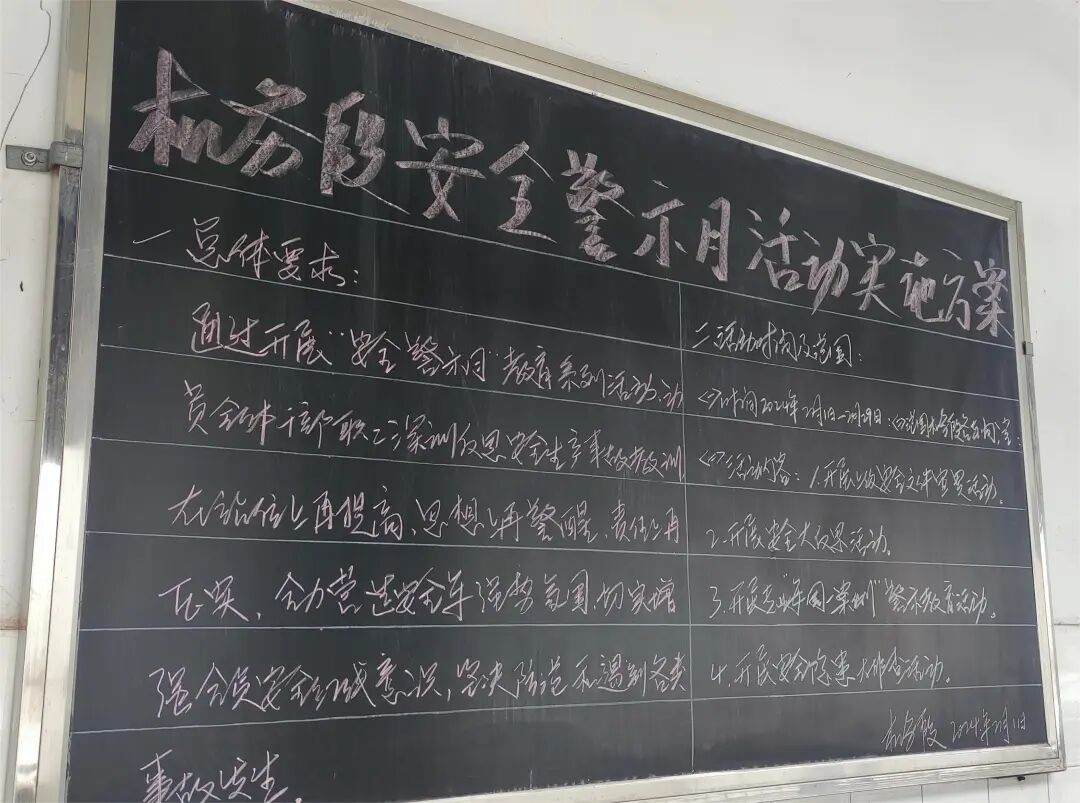 机务段安全警示月活动实施方案
一 总体要求:
通过开展"安全警示月"教育系列活动、动
员全体干部职工深刻反思安全生产事故教训
在站位上再提高、思想上再警醒、责任上再
压实,全力营造安全年强势氛围,切实增
强全员安全红线意识,坚决防范和遏制各类
事故发生。
二 活动时间及范围:
<一>时间2024年2月1日-2月29日:<二>范围机务段各车间、室:
活动内容:1.开展上级安全文件宣贯活动。
2.开展安全大反思活动。
3.开展"年同一案例"警示教育活动。
4.开展安全隐患大排查活动。
机务段 2024年2月1日